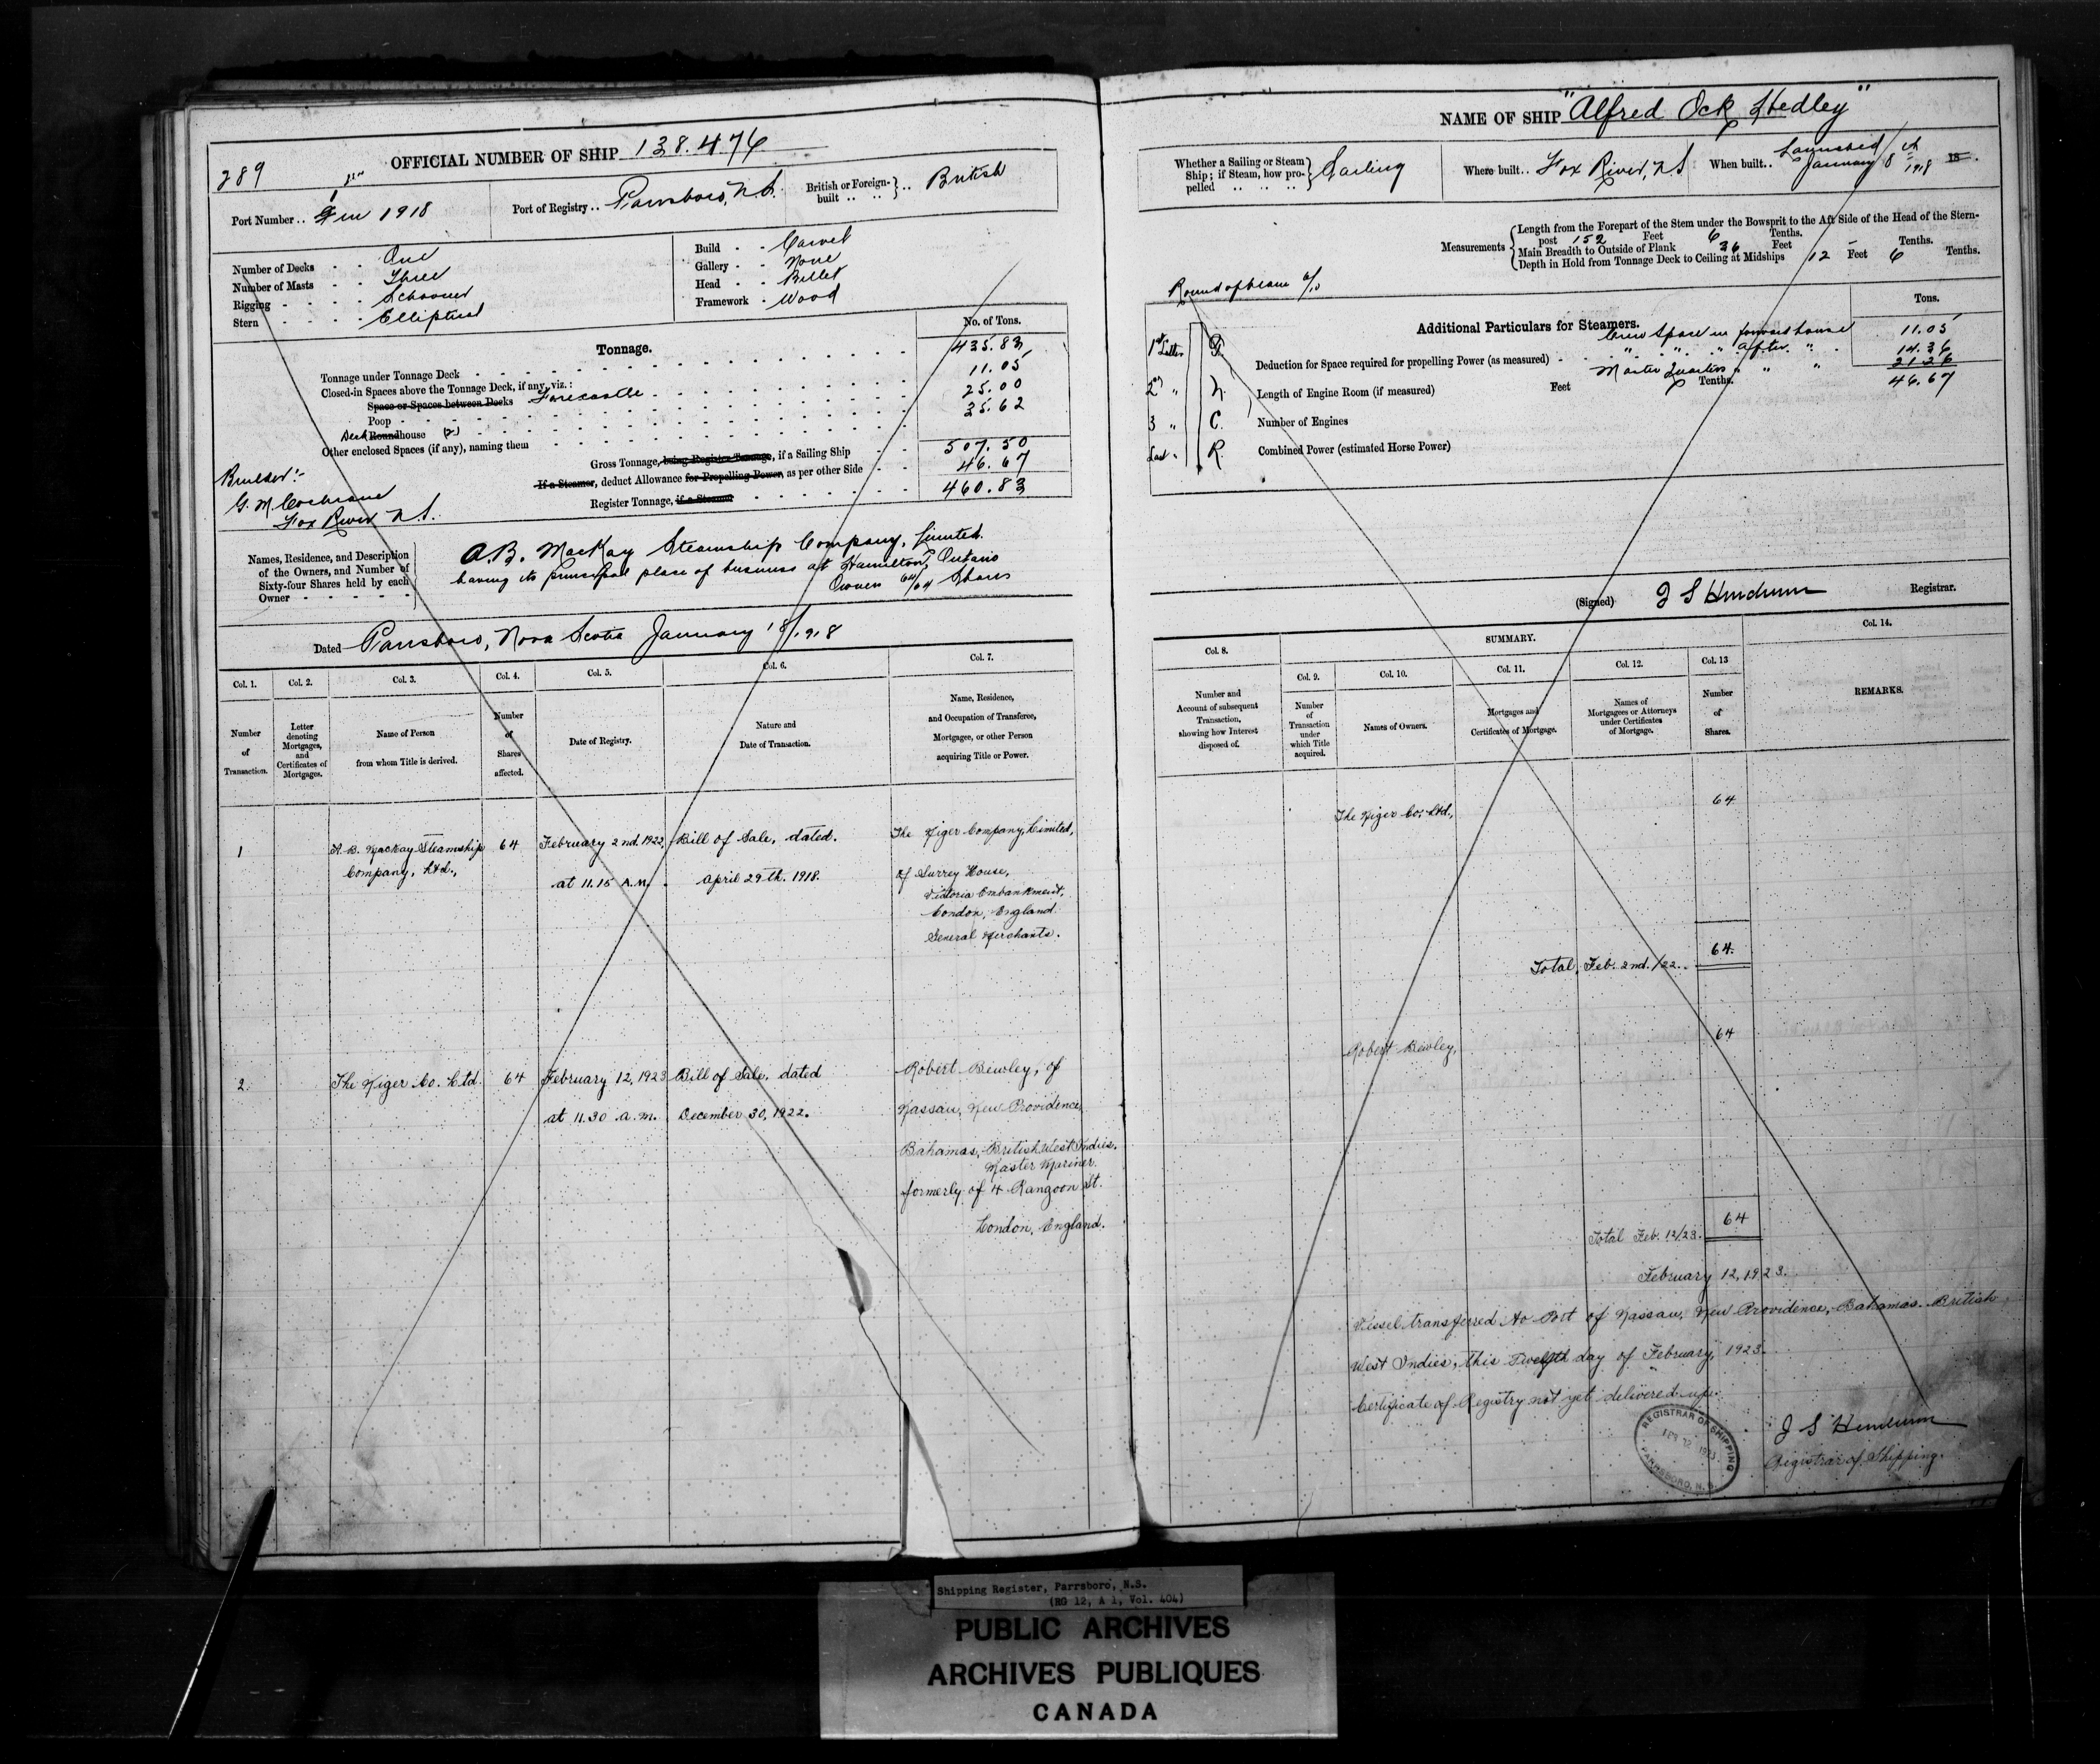 289
OFFICIAL NUMBER OF SHIP 138.476
Port Number .. 1 in 1918
Port of Registry .. Parrsboro, N.S.
British or Foreign-built .. .. British
Number of Decks - - One
Number of Masts - - Three
Rigging - - - - Schooner
Stern - - - - Elliptical
Build - - Carvel
Gallery - - None
Head - - Billet
Framework - Wood
Tonnage.
No. of Tons.
Tonnage under Tonnage Deck 435.83
Closed-in Spaces above the Tonnage Deck, if any, viz.:
Space or Spaces between Decks Forecastle 11.05
Poop 25.00
Deck Roundhouse (2) 35.62
Other enclosed Spaces (if any), naming them
Gross Tonnage, being Register Tonnage, if a Sailing Ship 507.50
If a Steamer, deduct Allowance for Propelling Power, as per other Side 46.67
Register Tonnage, if a Steamer 460.83
Builder:-
G. M. Cochrane
Fox River N.S.
Names, Residence, and Description of the Owners, and Number of Sixty-four Shares held by each Owner
A.B. MacKay Steamship Company, Limited.
having its principal place of business at Hamilton, Ontario
Owners 64/64 Shares
Dated Parrsboro, Nova Scotia January 18/1918
Col. 1. Col. 2. Col. 3. Col. 4. Col. 5. Col. 6. Col. 7.
Number of Transaction.
Letter denoting Mortgages, and Certificates of Mortgages.
Name of Person from whom Title is derived.
Number of Shares affected.
Date of Registry.
Nature and Date of Transaction.
Name, Residence, and Occupation of Transferee, Mortgagee, or other Person acquiring Title or Power.
1 A. B. Mackay Steamship 64 February 2nd. 1922, Bill of Sale, dated. The Niger Company, Limited,
Company, Ltd., at 11.15 A.M. April 29th. 1918. of Surrey House,
Victoria Embankment,
London, England.
General Merchants.
2 The Niger Co. Ltd. 64 February 12, 1923 Bill of Sale, dated Robert Bewley, of
at 11.30 a.m. December 30, 1922. Nassau, New Providence,
Bahamas, British West Indies.
Master Mariner
formerly of 4 Rangoon St.
London, England.
NAME OF SHIP "Alfred Ock Hedley"
Whether a Sailing or Steam Ship; if Steam, how propelled .. .. .. Sailing
Where built .. Fox River, N.S
When built .. Launched January 8th 1918
Measurements
Length from the Forepart of the Stem under the Bowsprit to the Aft Side of the Head of the Stern-
post 152 Feet 6 Tenths.
Main Breadth to Outside of Plank 36 Feet - Tenths.
Depth in Hold from Tonnage Deck to Ceiling at Midships 12 Feet 6 Tenths.
Round of beam 6/10
Tons.
Additional Particulars for Steamers.
Crew Space in forward house 11.05
" " " After " 14.36
Master Quarters " " " 21.26
46.67
Deduction for Space required for propelling Power (as measured)
Length of Engine Room (if measured) Feet Tenths.
Number of Engines
Combined Power (estimated Horse Power)
1st Letter P.
2nd " N.
3 " C.
Last " R.
(Signed) J S Henderson Registrar.
Col. 8. SUMMARY. Col. 14.
Col. 9. Col. 10. Col. 11. Col. 12. Col. 13
Number and Account of subsequent Transaction, showing how Interest disposed of.
Number of Transaction under which Title acquired.
Names of Owners.
Mortgages and Certificates of Mortgage.
Names of Mortgagees or Attorneys under Certificates of Mortgage.
Number of Shares.
REMARKS.
The Niger Co. Ltd., 64
Total, Feb. 2nd. /22.. 64.
Robert Bewley, 64
Total Feb. 12/23. 64
February 12, 1923.
Vessel transferred to Port of Nassau, New Providence, Bahamas. British
West Indies, this Twelfth day of February, 1923.
Certificate of Registry not yet delivered up.
J S Henderson
Registrar of Shipping.
REGISTRAR OF SHIPPING
FEB 12 1923
PARRSBORO, N.S.
Shipping Register, Parrsboro, N.S.
(RG 12, A 1, Vol. 404)
PUBLIC ARCHIVES
ARCHIVES PUBLIQUES
CANADA